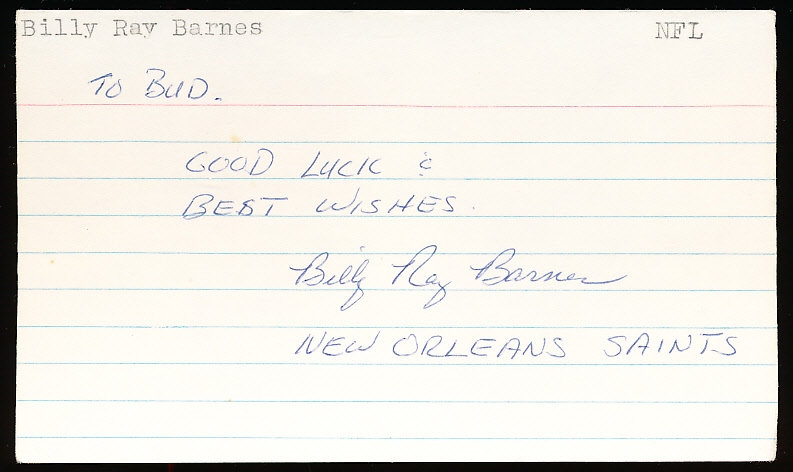 Billy Ray Barnes NFL
TO BUD.
GOOD LUCK &
BEST WISHES.
Billy Ray Barnes
NEW ORLEANS SAINTS